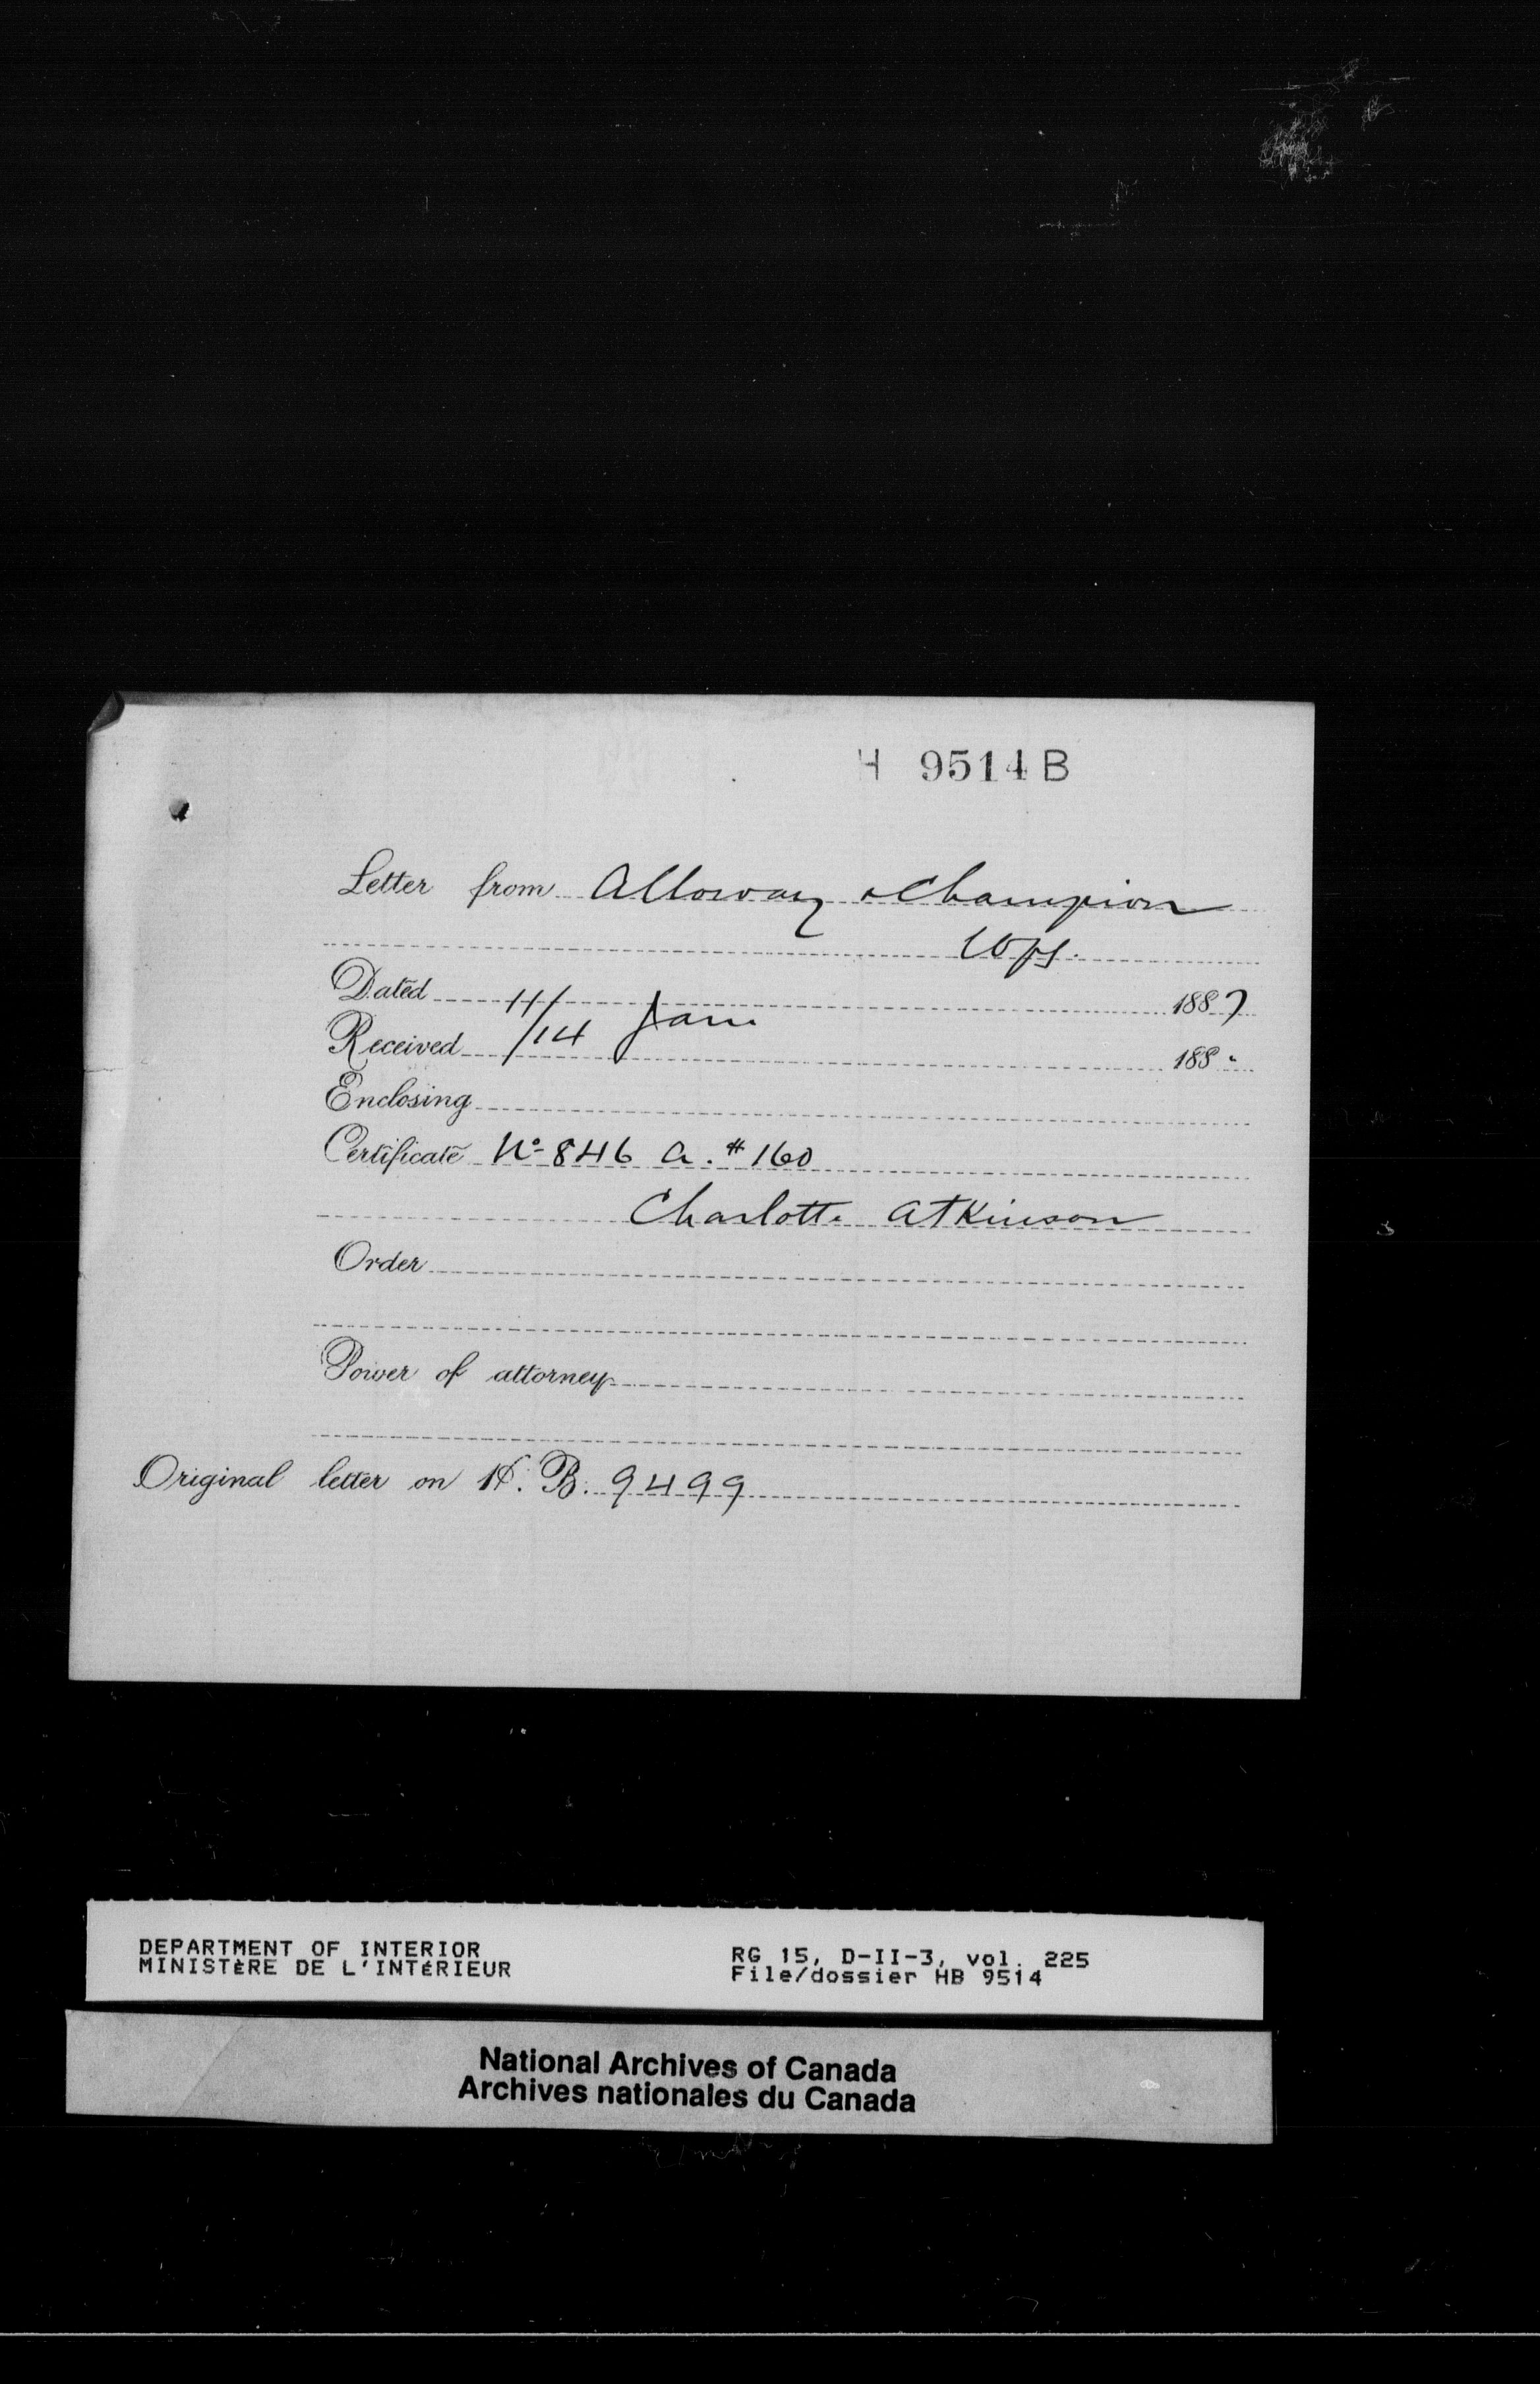 H 9514 B
Letter from Alloway & Champion
Wpg.
Dated 11/ Jan. 1887
Received /14 188"
Enclosing
Certificate No 846 A. # 160
Charlotte Atkinson
Order
Power of attorney
Original letter on H. B. 9499
DEPARTMENT OF INTERIOR
MINISTÈRE DE L'INTÉRIEUR
RG 15, D-II-3, vol. 225
File/dossier HB 9514
National Archives of Canada
Archives nationales du Canada